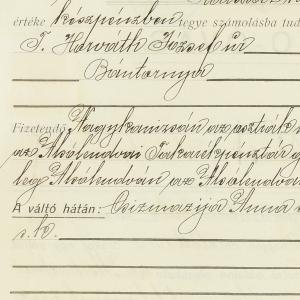 értéke készpénzben tegye számolásba tud
T. Horváth József úr
Bántornya
Fizetendő Nagykanizsán az osztrák
az Alsólendvai Takarékpénztár
leg Alsólendván, az Alsólendva
A váltó hátán: Csizmazija Anna s
s. k.